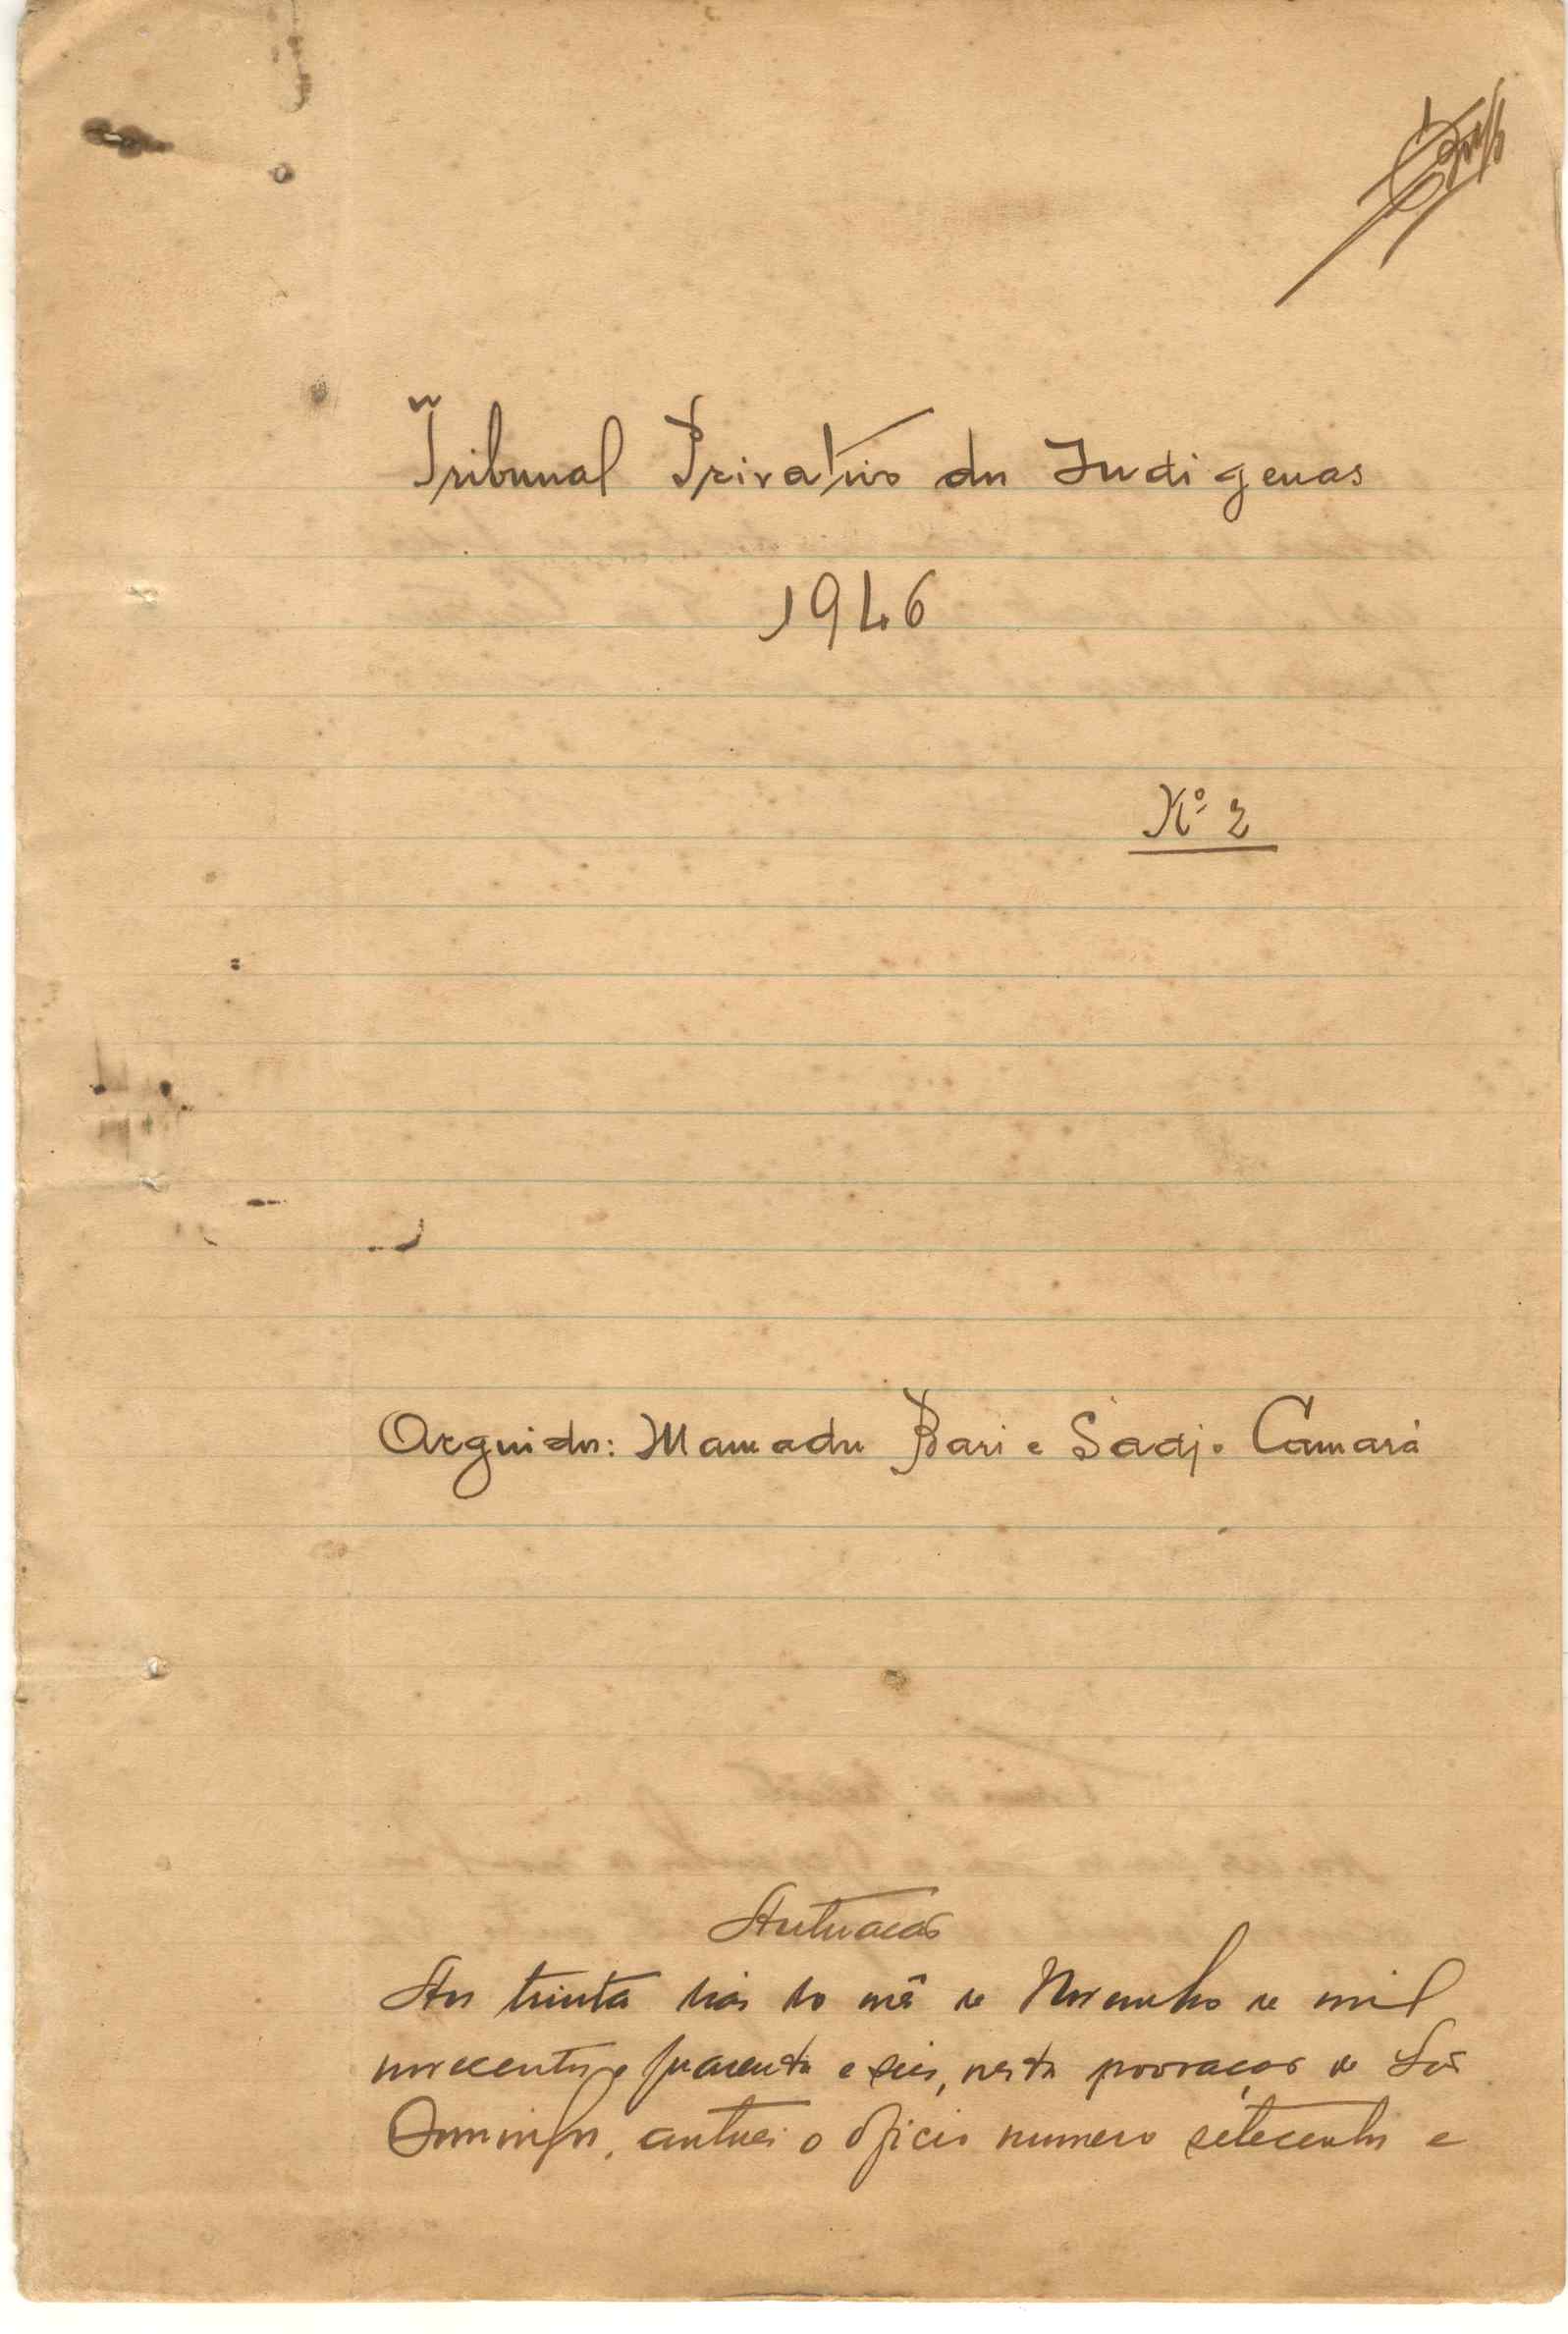 Tribunal Privativo dos Indigenas
1946
Nº 2
Arguidos: Mamadu Bari e Sadjo Camará
Autuacão
Aos trinta dias do mês de Novembro de mil
novecentos e quarenta e seis, nesta povoação de São
Domingos, autuei o oficio numero setecentos e